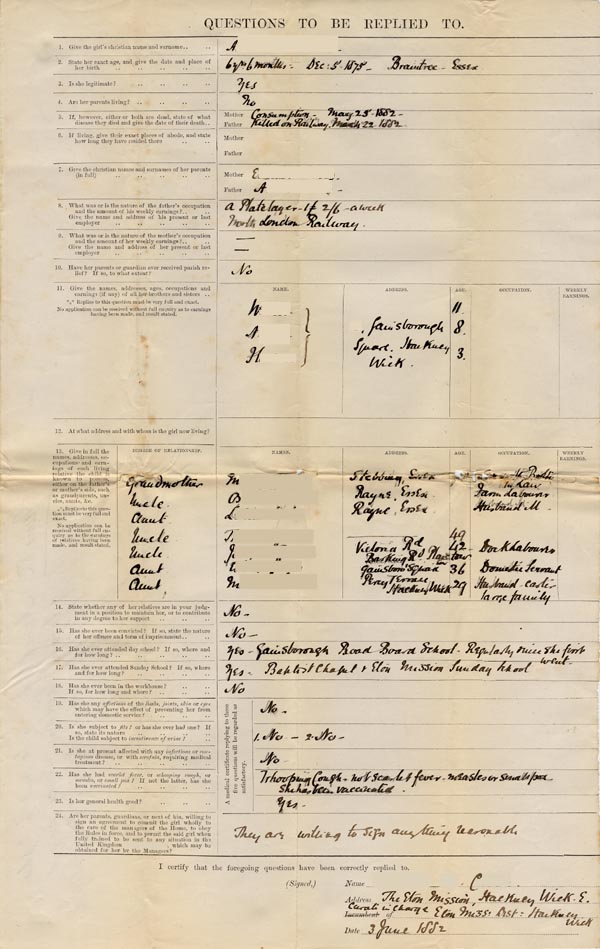 QUESTIONS TO BE REPLIED TO.
1. Give the girl's christian name and surname.. A
2. State her exact age, and give the date and place of her birth 6 yrs 6 months - Dec: 5th 1875 - Braintree - Essex
3. Is she legitimate? Yes
4. Are her parents living? No
5. If, however, either or both are dead, state of what disease they died and give the date of their death.. Mother Consumption - May 25th 1882 -
Father Killed on Railway, March 22 1882
6. If living, give their exact places of abode, and state how long they have resided there Mother
Father
7. Give the christian names and surnames of her parents (in full) Mother E
Father A
8. What was or is the nature of the father's occupation and the amount of his weekly earnings?.. Give the name and address of his present or last employer a Platelayer - 2/6 - a week
North London Railway.
9. What was or is the nature of the mother's occupation and the amount of her weekly earnings? Give name and address of her present or last employer —
—
10. Have her parents or guardian ever received parish relief? If so, to what extent? No
11. Give the names, addresses, ages, occupations and earnings (if any) of all her brothers and sisters
Reply to this question must be very full and exact.
No application can be received without full enquiry as to earnings having been made, and result stated.
NAME. ADDRESS. AGE. OCCUPATION. WEEKLY EARNINGS.
W 11
A Gainsborough 8
H Square. Hackney 3
Wick.
12. At what address and with whom is the girl now living?
13. Give in full the names, addresses, occupations and earnings of each living relative the child is known to possess, either on the father's or mother's side, such as grandparents, uncles, aunts, &c.
Reply to this question must be very full and exact.
No application can be received without full enquiry as to the earnings of relatives having been made, and result stated.
DEGREE OF RELATIONSHIP. NAMES. ADDRESS. AGE. OCCUPATION. WEEKLY EARNINGS.
Grandmother M Stebbing, Essex in Law
Uncle B Rayne, Essex Farm Labourer
Aunt L Rayne, Essex Husband
Uncle T. 49
Uncle J Victoria Rd Barking Rd Plaistow 42 Dock labourer
Aunt E Gainsboro' Square 36 Domestic Servant
Aunt M Percy Terrace Hackney Wick 29 Husband - carter
large family
14. State whether any of her relatives are in your judgment in a position to maintain her, or to contribute in any degree to her support No -
15. Has she ever been convicted? If so, state the nature of her offence and term of imprisonment.. No -
16. Has she ever attended day school? If so, where and for how long? Yes - Gainsborough Road Board School - Regularly since she first went -
17. Has she ever attended Sunday School? If so, where and for how long? Yes - Baptist Chapel & Eton Mission Sunday School
18. Has she ever been in the workhouse? If so, for how long and where? No
A medical certificate replying to these five questions will be regarded as satisfactory.
19. Has she any affections of the limbs, joints, skin or eyes which may have the effect of preventing her from entering domestic service? No -
20. Is she subject to fits? or has she ever had one? If so, state its nature Is the child subject to incontinence of urine? 1. No - 2. No -
21. Is she at present affected with any infectious or contagious disease, or with any requiring medical treatment? No -
22. Has she had scarlet fever, or whooping cough, or measles, or small pox? If not the latter, has she been vaccinated? Whooping Cough - not scarlet fever - measles or smallpox
She has been vaccinated -
23. Is her general health good? Yes -
24. Are her parents, guardians, or next of kin, willing to sign an agreement to commit the girl wholly to the care of the managers of the Home, to obey the Rules in force, and to permit the said girl when fully trained to be sent to any situation in the United Kingdom , which may be obtained for her by the Managers? They are willing to sign anything reasonable
I certify that the foregoing questions have been correctly replied to.
(Signed.) Name C
Address The Eton Mission, Hackney Wick. E.
Curate in Charge
Incumbent of Eton Miss: Dist: Hackney Wick
Date 3 June 1882